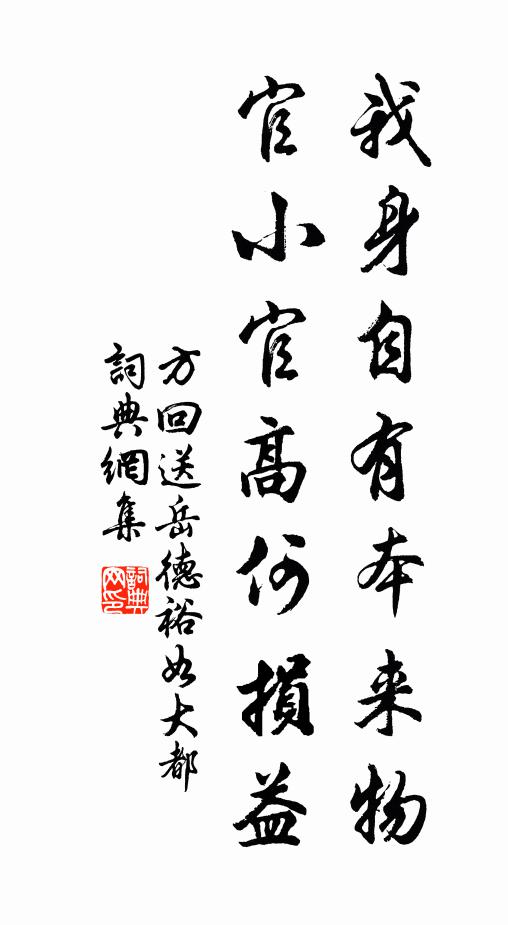 我身自有本来物
官小官高何損益
方回送岳德裕如大都
詞典網集
詞典網印